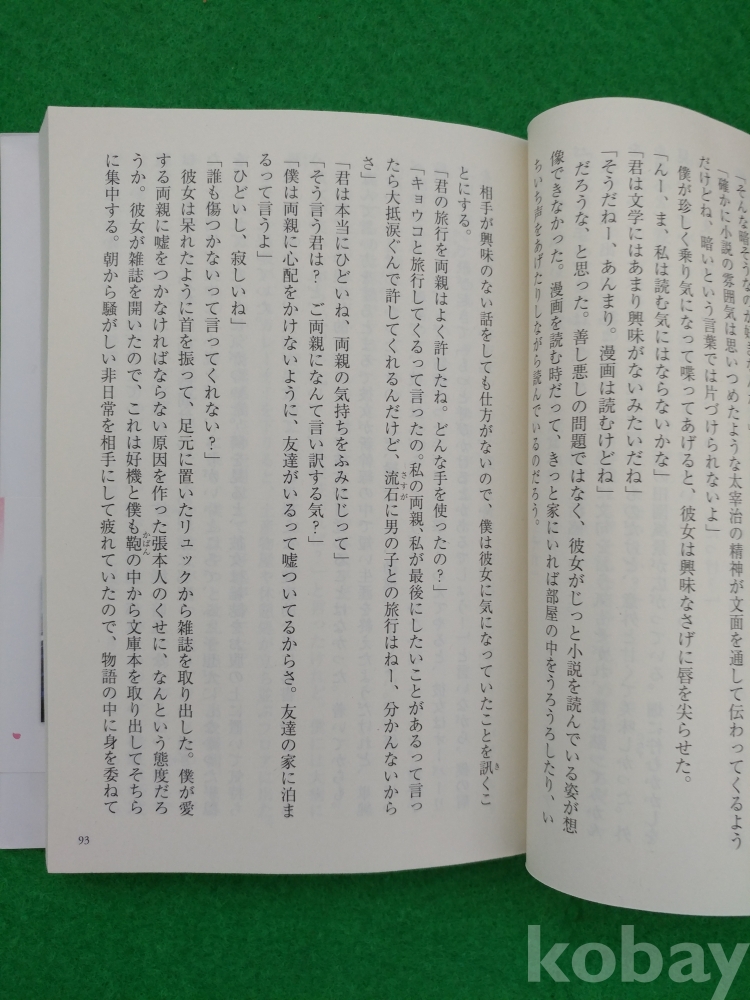 「確かに小説の雰囲気は思いつめたような太宰治の精神が文面を通して伝わってくるよう
だけどね、暗いという言葉では片づけられないよ」
僕が珍しく乗り気になって喋ってあげると、彼女は興味なさげに唇を尖らせた。
「んー、ま、私は読む気にはならないかな」
「君は文学にはあまり興味がないみたいだね」
「そうだねー、あんまり。漫画は読むけどね」
だろうな、と思った。善し悪しの問題ではなく、彼女がじっと小説を読んでいる姿が想
像できなかった。漫画を読む時だって、きっと家にいれば部屋の中をうろうろしたり、い
ちいち声をあげたりしながら読んでいるのだろう。
相手が興味のない話をしても仕方がないので、僕は彼女に気になっていたことを訊くこ
とにする。
「君の旅行を両親はよく許したね。どんな手を使ったの？」
「キョウコと旅行してくるって言ったの。私の両親、私が最後にしたいことがあるって言っ
たら大抵涙ぐんで許してくれるんだけど、流石に男の子との旅行はねー、分かんないから
さ」
「君は本当にひどいね、両親の気持ちをふみにじって」
「そう言う君は？　ご両親になんて言い訳する気？」
「僕は両親に心配をかけないように、友達がいるって嘘ついてるからさ。友達の家に泊ま
るって言うよ」
「ひどいし、寂しいね」
「誰も傷つかないって言ってくれない？」
彼女は呆れたように首を振って、足元に置いたリュックから雑誌を取り出した。僕が愛
する両親に嘘をつかなければならない原因を作った張本人のくせに、なんという態度だろ
うか。彼女が雑誌を開いたので、これは好機と僕も鞄の中から文庫本を取り出してそちら
に集中する。朝から騒がしい非日常を相手にして疲れていたので、物語の中に身を委ねて
93
kobay